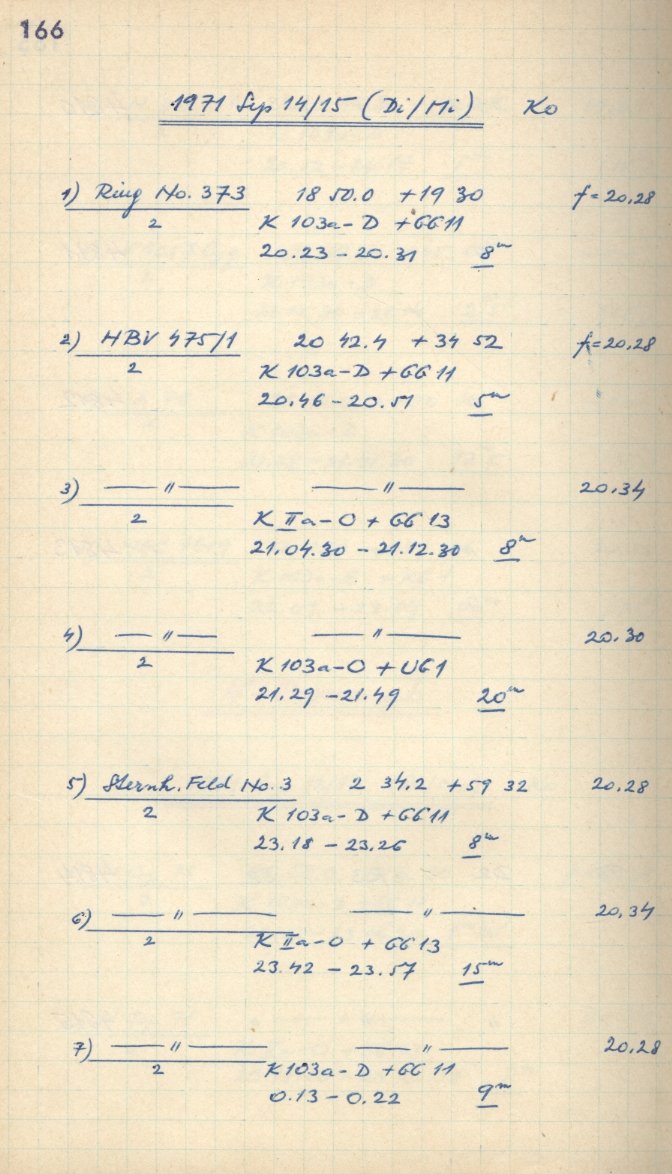 166
1971 Sep 14/15 (Di/Mi) Ko
1) Ring No. 373 18 50.0 +19 30 f = 20,28
2 K 103a-D + GG 11
20.23 – 20.31 8m
2) HBV 475/1 20 42.4 +34 52 f = 20,28
2 K 103a-D + GG 11
20.46 – 20.51 5m
3) — " — — " — 20,34
2 K IIa-O + GG 13
21.04.30 – 21.12.30 8m
4) — " — — " — 20.30
2 K 103a-O + UG1
21.29 – 21.49 20m
5) Sternh. Feld No. 3 2 34.2 +59 32 20,28
2 K 103a-D + GG 11
23.18 – 23.26 8m
6) — " — — " — 20,34
2 K IIa-O + GG 13
23.42 – 23.57 15m
7) — " — — " — 20,28
2 K 103a-D + GG 11
0.13 – 0.22 9m